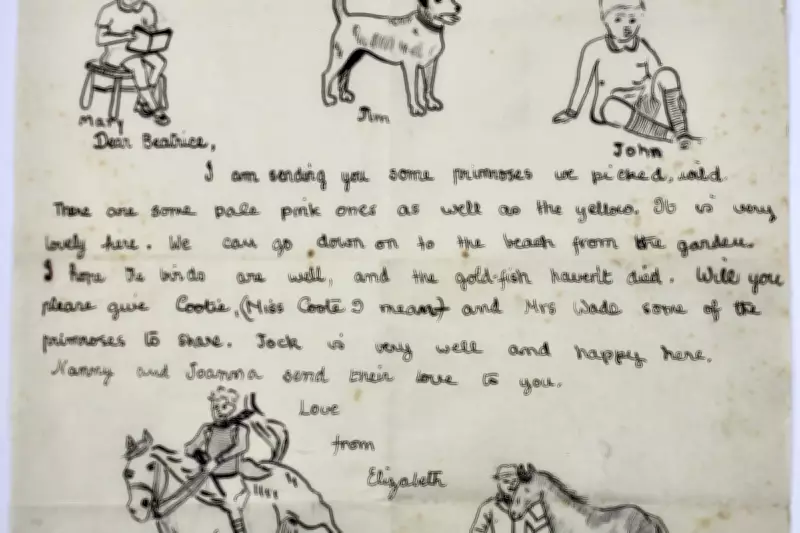 Mary
Jim
John
Dear Beatrice,
I am sending you some primroses we picked, wild.
There are some pale pink ones as well as the yellow. It is very
lovely here. We can go down on to the beach from the garden.
I hope Te birds are well, and the gold-fish haven't died. Will you
please give Cootie, (Miss Coote I mean) and Mrs Wade some of the
primroses to share. Jock is very well and happy here.
Nanny and Joanna send their love to you.
Love
from
Elizabeth